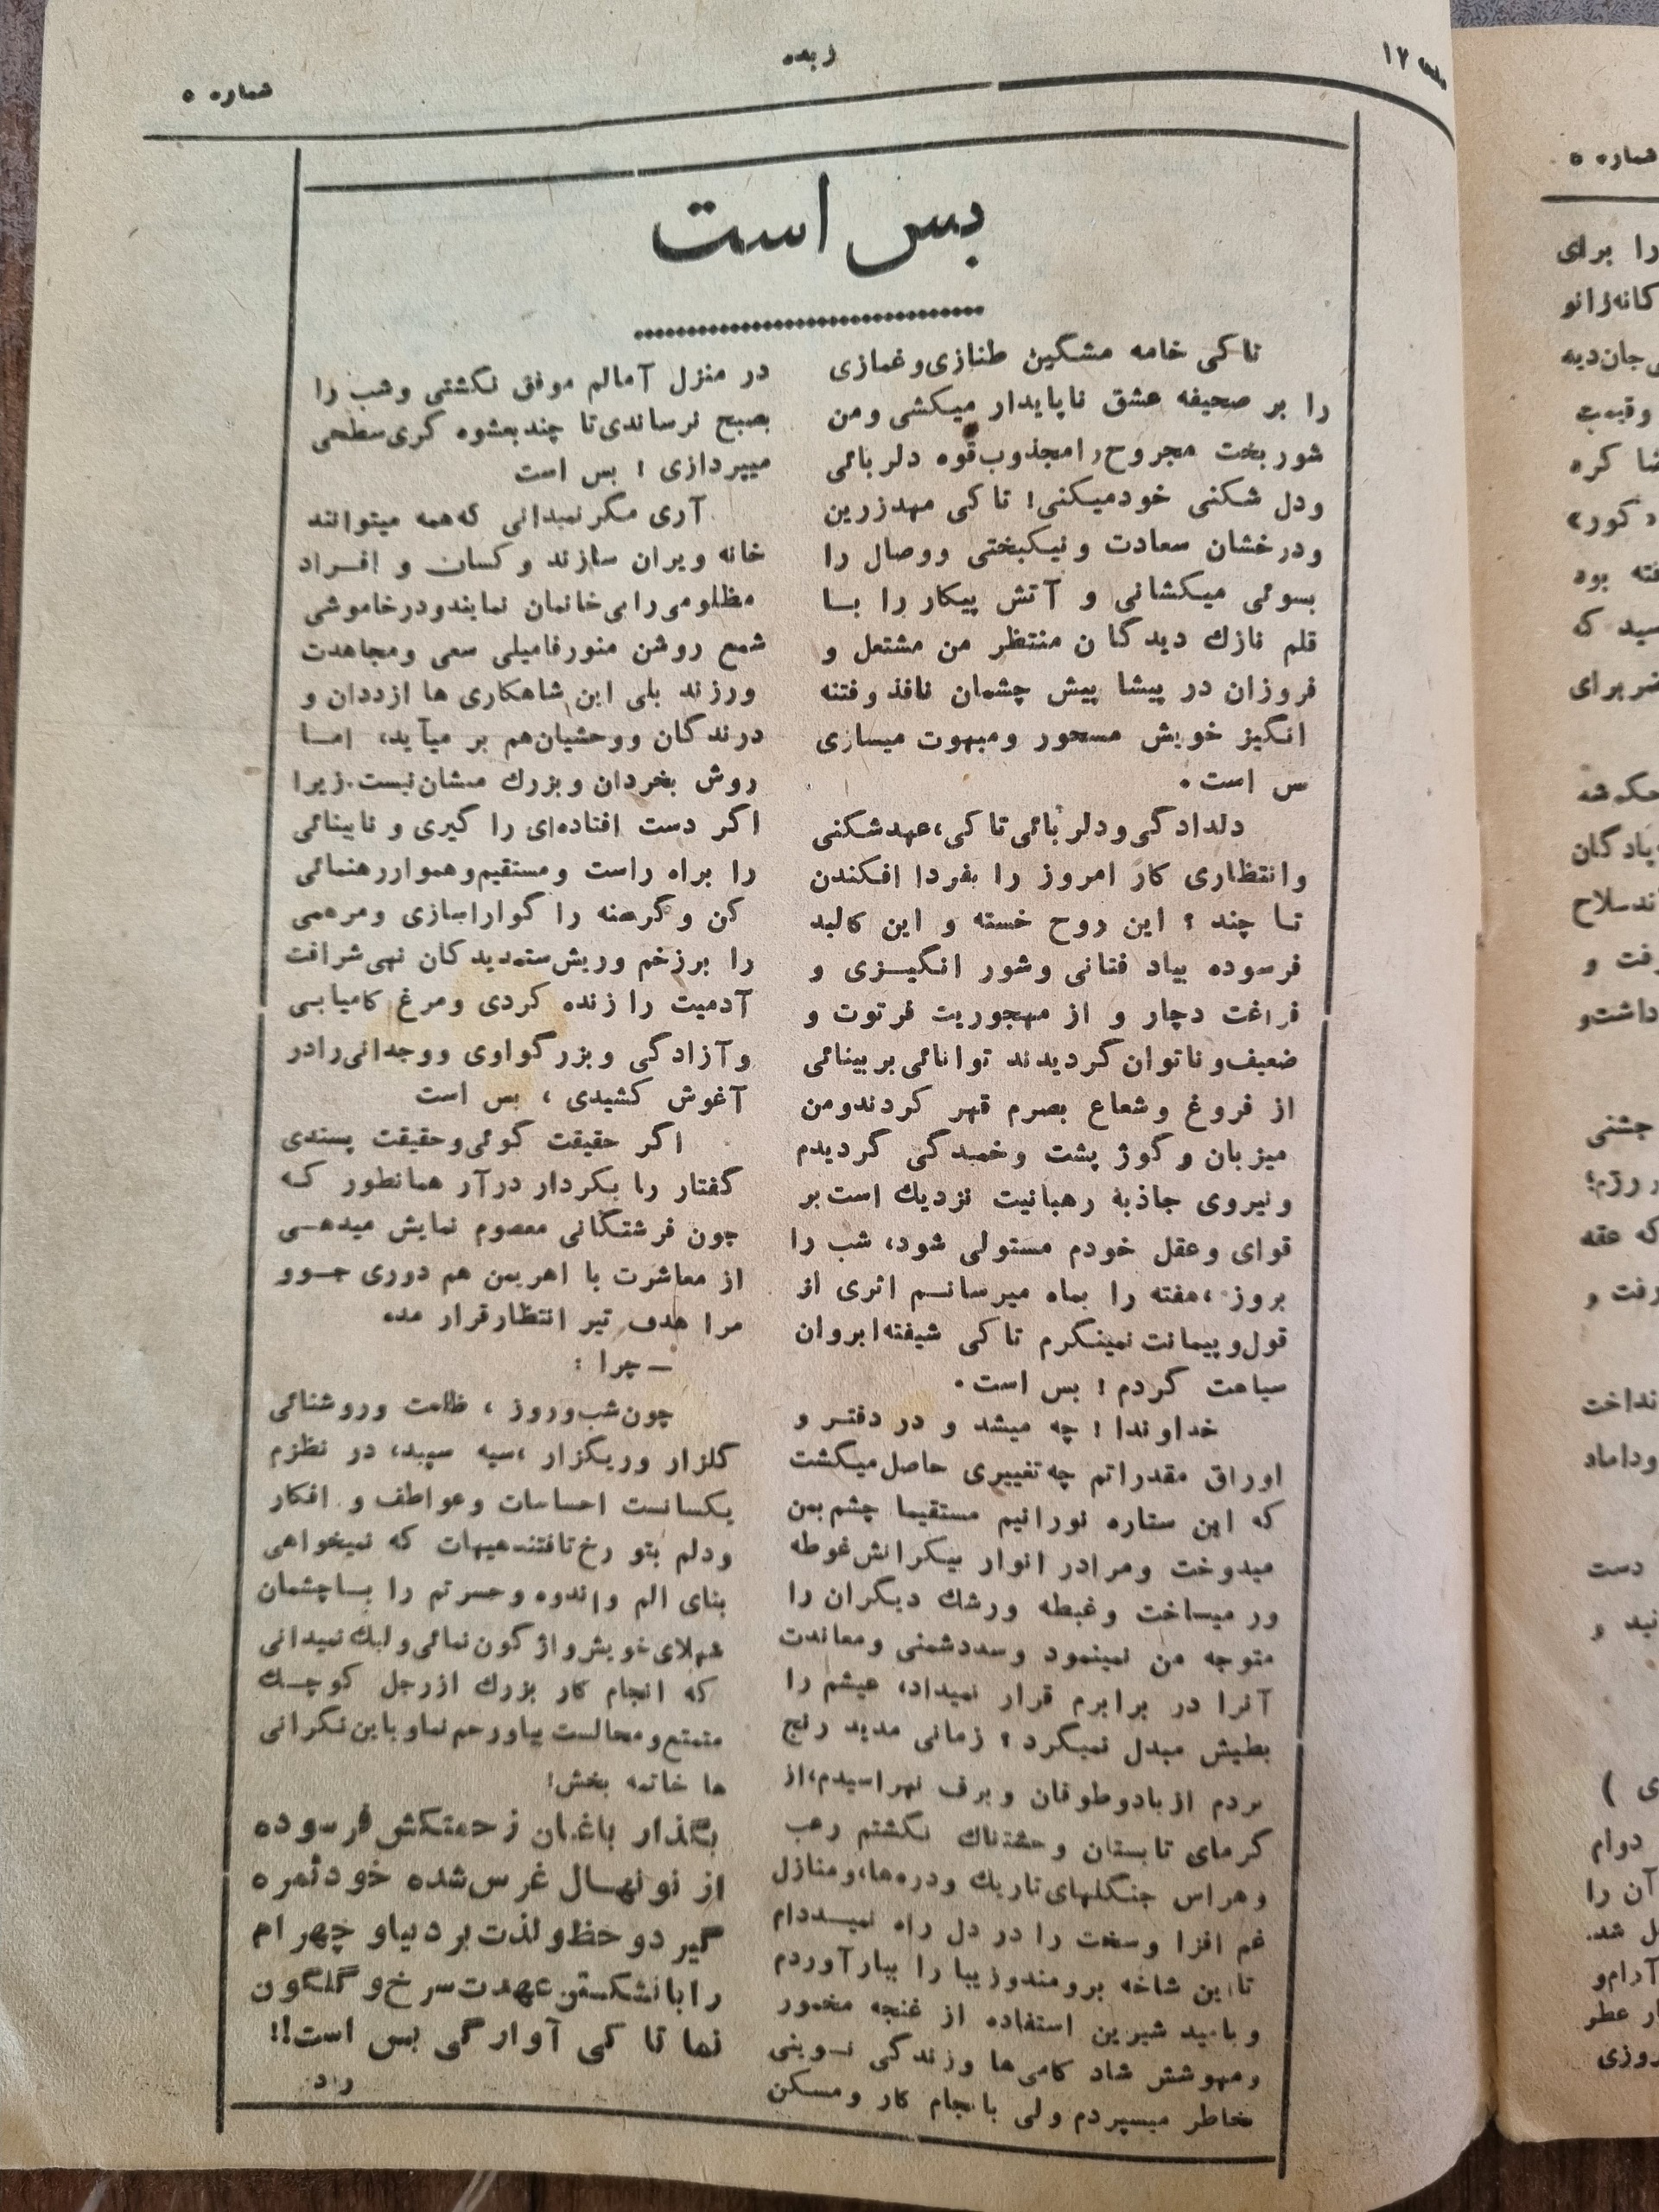 صفحه ۱۲
زبده
شماره ۵
بس است
تاکی خامه مشگین طنازی‌وغمازی
را بر صحیفه عشق ناپایدار میکشی ومن
شوربخت مجروح‌رامجذوب‌قوه دلربائی
ودل شکنی خودمیکنی! تاکی مهدزرین
ودرخشان سعادت ونیکبختی ووصال را
بسوئی میکشانی و آتش پیکار را بـا
قلم نازك دیدگان منتظر من مشتعل و
فروزان در پیشا پیش چشمان نافذ وفتنه
انگیز خویش مسحور ومبهوت میسازی
س است.
دلدادگی‌ودلربائی‌تاکی،عهدشکنی
وانتظاری کار امروز را بفردا افکندن
تـا چند ؟ این روح خسته و این کالبد
فرسوده بیاد فتانی وشور انگیـزی و
فراغت دچار و از مهجوریت فرتوت و
ضعیف‌وناتوان‌گردیدند توانائی‌بربینائی
از فروغ وشعاع بصرم قهر کردندومن
میزبان و کوژ پشت وخمیدگی گردیدم
ونیروی جاذبهٔ رهبانیت نزدیك است‌بر
قوای وعقل خودم مستولی شود، شب را
بروز ،هفته را بماه میرسانـم اثری از
قول‌وپیمانت‌نمینگرم تاکی شیفته‌ابروان
سیاهت گردم ! بس است.
خداوندا ! چه میشد و در دفتـر و
اوراق مقدراتم چه‌تغییری حاصل‌میگشت
که این ستاره نورانیم مستقیما چشم‌بمن
میدوخت ومرادر انوار بیکرانش‌غوطه
ور میساخت وغبطه ورشك دیگران را
متوجه من نمینمود وسددشمنی ومعاندت
آنرا در برابرم قرار نمیداد، عیشم را
بطیش مبدل نمیکرد ؟ زمانی مدید رنج
بردم ازبادوطوفان وبرف نهراسیدم،از
گرمای تابستان وحشتناك نگشتم رعب
وهراس جنگلهای‌تاریك ودره‌ها،ومنازل
غم افزا وسخت را در دل راه نمیـددام
تااین شاخه برومندوزیبا را ببارآوردم
وبامید شیرین استفاده از غنچه مخمور
ومهوشش شاد کامی‌ها وزندگی نـوینی
بخاطر میسپردم ولی بانجام کار ومسکن
در منزل آمالم موفق نگشتی وشب را
بصبح نرساندی‌تا چندبعشوه گری‌سطحی
میپردازی ! بس است
آری مگرنمیدانی که‌همه میتوانند
خانه ویران سازند وکسان و افـراد
مظلومی‌رابی‌خانمان نمایندودرخاموشی
شمع روشن منورفامیلی سعی ومجاهدت
ورزند بلی این شاهکاری ها ازددان و
درندگان ووحشیان‌هم بر میآید، امـا
روش بخردان وبزرك منشان‌نیست.زیرا
اگر دست افتاده‌ای را گیری و نابینائی
را براه راست ومستقیم‌وهمواررهنمائی
کن وگرسنه را گواراسازی ومرهمی
را برزخم وریش‌ستمدیدکان نهی‌شرافت
آدمیت را زنده کردی ومرغ کامیابـی
وآزادگی وبزرگواوی ووجدانی‌رادر
آغوش کشیدی ، بس است
اگر حقیقت گوئی‌وحقیقت پسندی
گفتار را بکردار درآر همانطور کـه
چون فرشتگانی معصوم نمایش میدهـی
از معاشرت با اهریمن هم دوری جـوو
مرا هدف تیر انتظارقرار مده
ــ چرا :
چون‌شب‌وروز ، ظلمت وروشنائی
گلزار وریگزار ،سیه سپید، در نظزم
یکسانست احساسات وعواطف و افکار
ودلم بتو رخ‌تافتندهیهات که نمیخواهی
بنای الم واندوه وحسرتم را بـاچشمان
شهلای‌خویش‌واژگون‌نمائی‌ولیك‌نمیدانی
که انجام کار بزرك ازرجل کوچـك
متمتع‌ومحالست بیاورحم‌نماوباین‌نگرانی
ها خاتمه بخش!
بگذار باغبان زحمتکش‌فرسوده
از نونهـال غرس‌شده خودثمره
گیردوحظ‌ولذت‌بردبیاو چهرام
رابانشکستن‌عهدت‌سرخ‌وگلگون
نما تا کی آوارگی بس است!!
ر.د